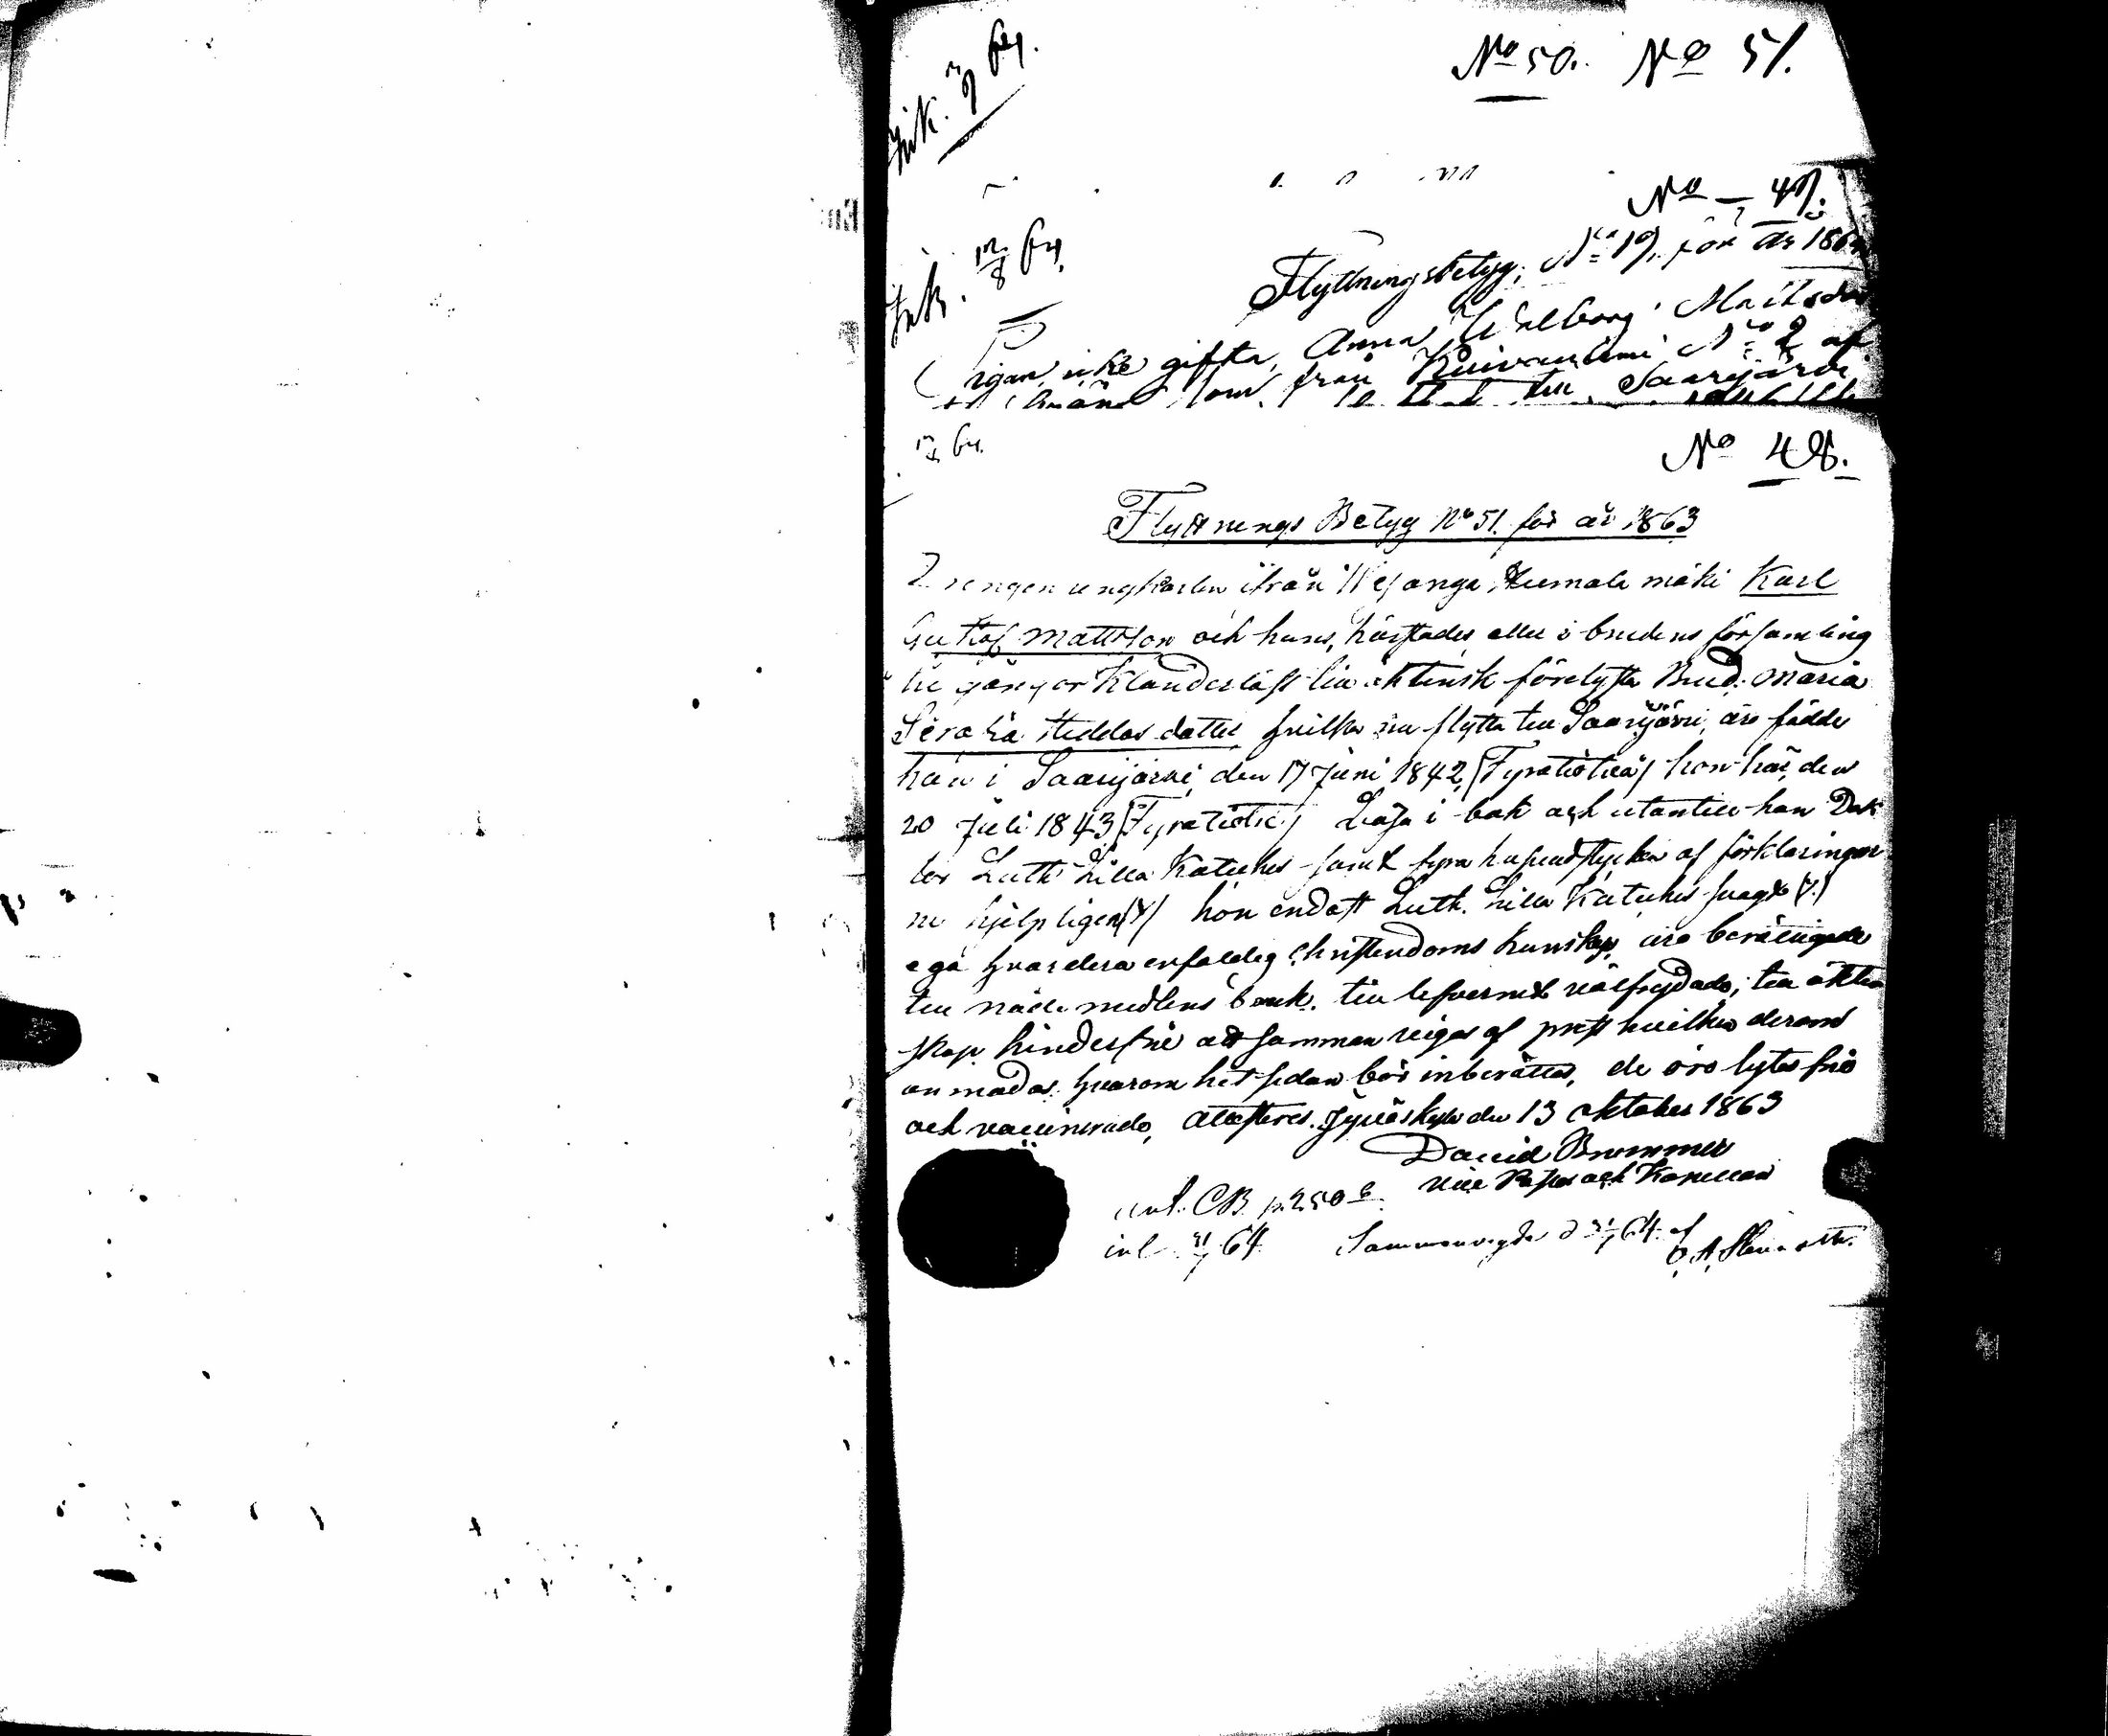 No 50. No 51.
Ink. 64.
No 47.
Ink. 64.
Flyttningsbetyg, No 19, för År 1864
Pigan, icke gifta, Anna Walborg Mattsdr
från Kuivaniemi No 2 af
till Saarijärvi
64.
No 48.
Flyttnings Betyg No 51. för år 1863
Drengen ungkarlen ifrån Wesanga Humala mäki Karl
Gustaf Mattsson och hans, härstädes eller i brudens församling
tre gånger klanderlöst till äktensk förelyste Brud. Maria
Serafia dotter hvilka nu flytta till Saarijärvi, äro födde
han i Saarijärvi, den 17 Juni 1842, hon här, den
20 Juli 1843 Läsa i bok och utantill han Dok
tor Luth. Lilla Kateches samt fyra hufvudstycken af förklaringar
ne hjelpligen hon endast Luth. Lilla Kateches svagt
ega hvardera enfaldig christendoms kunskap, äro berättigade
till nådemedlens bruk. till lefvernet välfrejdade; till äkten
skap hindersfrie att sammanvigas af prest hvilken derom
anmodas hvarom hit sedan bör inberättas, de äro lytes frie
och vaccinerade, attesteres. Jyväskylä den 13 Oktober 1863
David Brummer
vice Pastor och Kapellan
ant. CB. p. 250
inl 64 Sammanvigde d 64 af